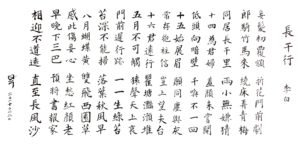 長干行 李白
妾髮初覆額 折花門前劇
郎騎竹馬來 繞床弄青梅
同居長干里 兩小無嫌猜
十四為君婦 羞顏未嘗開
低頭向暗壁 千喚不一回
十五始展眉 願同塵與灰
常存抱柱信 豈上望夫台
十六君遠行 瞿塘灩澦堆
五月不可觸 猿聲天上哀
門前遲行跡 一一生綠苔
苔深不能掃 落葉秋風早
八月蝴蝶黃 雙飛西園草
感此傷妾心 坐愁紅顏老
早晚下三巴 預將書報家
相迎不道遠 直至長風沙